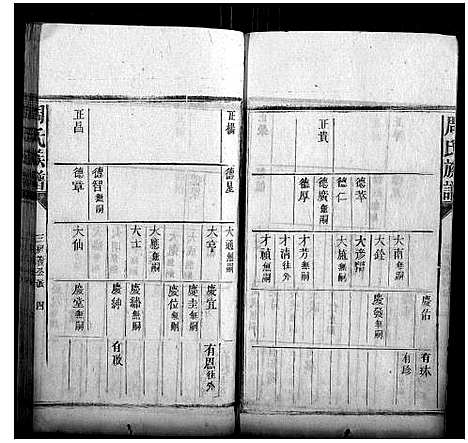 周氏族譜
正貴
德萃
德仁
德廣無嗣
德厚
大南無嗣
大銓
大彥
大施無嗣
才芳無嗣
才清往外
才楨無嗣
慶佑
慶發無嗣
有珍
正楊
正昌
德星
德智無嗣
德章
大通無嗣
大亨
大廳無嗣
大士
大仙
慶宜
慶圭無嗣
慶位無嗣
慶繡無嗣
慶紳
慶堂無嗣
有恩往外
有政
周氏族譜
四